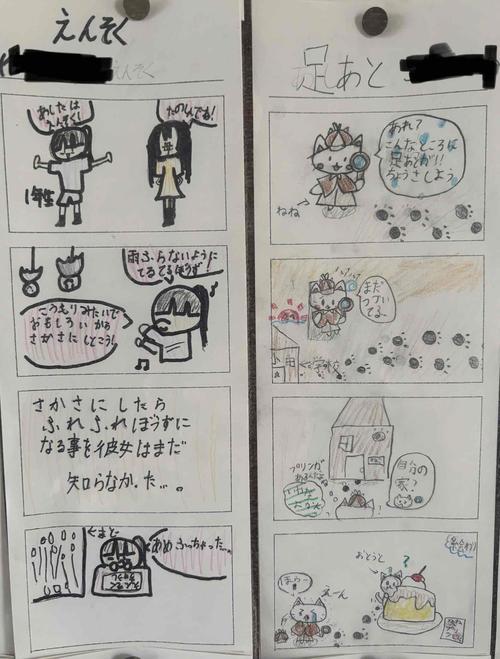 えんそく
えんそく
あしたは
えんそく!
たのしみでね!
1年生
雨ふらないように
てるてるぼうず
こうもりみたいで
おもしろいから
さかさにしとこう!
さかさにしたら
ふれふれぼうずに
なる事を彼女はまだ
知らなかった…。
←まど
あめふっちゃった…
足あと
あれ?
こんなところに
足あとが!!
ちょうさしよう
ねね
まだ
つづい
てる…
学校
プリンが
あるんだよ
自分の
家?
おとうと
?
えーん